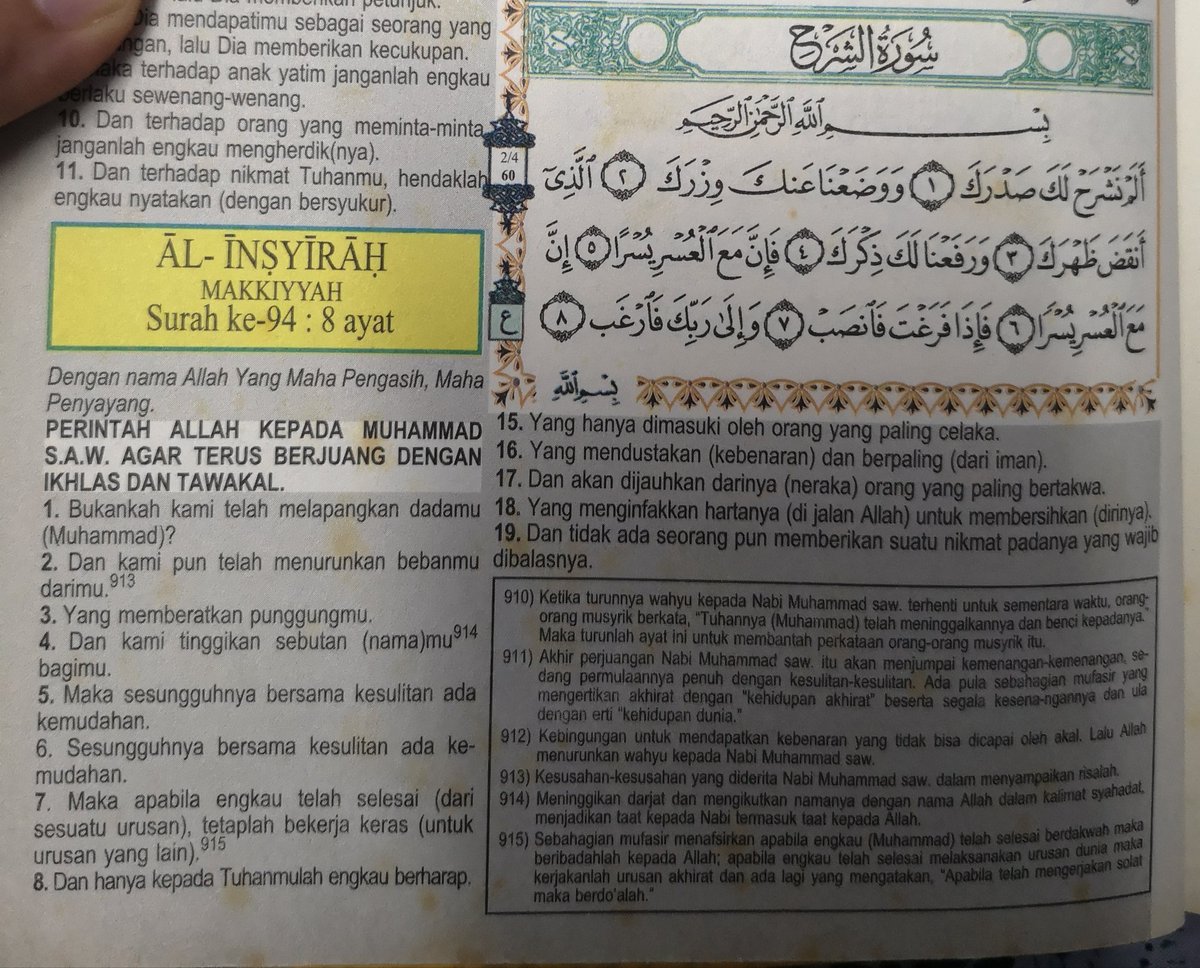 lalu Dia memberikan petunjuk.
Dia mendapatimu sebagai seorang yang
lalu Dia memberikan kecukupan.
terhadap anak yatim janganlah engkau
berlaku sewenang-wenang.
10. Dan terhadap orang yang meminta-minta
janganlah engkau mengherdik(nya).
11. Dan terhadap nikmat Tuhanmu, hendaklah
engkau nyatakan (dengan bersyukur).
ĀL- ĪNṢYĪRĀḤ
MAKKIYYAH
Surah ke-94 : 8 ayat
Dengan nama Allah Yang Maha Pengasih, Maha
Penyayang.
PERINTAH ALLAH KEPADA MUHAMMAD
S.A.W. AGAR TERUS BERJUANG DENGAN
IKHLAS DAN TAWAKAL.
1. Bukankah kami telah melapangkan dadamu
(Muhammad)?
2. Dan kami pun telah menurunkan bebanmu
darimu.913
3. Yang memberatkan punggungmu.
4. Dan kami tinggikan sebutan (nama)mu914
bagimu.
5. Maka sesungguhnya bersama kesulitan ada
kemudahan.
6. Sesungguhnya bersama kesulitan ada ke-
mudahan.
7. Maka apabila engkau telah selesai (dari
sesuatu urusan), tetaplah bekerja keras (untuk
urusan yang lain).915
8. Dan hanya kepada Tuhanmulah engkau berharap.
2/4
60
ع
سُورَةُ الشَّرْحِ
بِسْمِ اللَّهِ الرَّحْمَٰنِ الرَّحِيمِ
أَلَمْ نَشْرَحْ لَكَ صَدْرَكَ ١ وَوَضَعْنَا عَنكَ وِزْرَكَ ٢ ٱلَّذِىٓ
أَنقَضَ ظَهْرَكَ ٣ وَرَفَعْنَا لَكَ ذِكْرَكَ ٤ فَإِنَّ مَعَ ٱلْعُسْرِ يُسْرًا ٥ إِنَّ
مَعَ ٱلْعُسْرِ يُسْرًا ٦ فَإِذَا فَرَغْتَ فَٱنصَبْ ٧ وَإِلَىٰ رَبِّكَ فَٱرْغَب ٨
بِسْمِ اللَّهِ
15. Yang hanya dimasuki oleh orang yang paling celaka.
16. Yang mendustakan (kebenaran) dan berpaling (dari iman).
17. Dan akan dijauhkan darinya (neraka) orang yang paling bertakwa.
18. Yang menginfakkan hartanya (di jalan Allah) untuk membersihkan (dirinya).
19. Dan tidak ada seorang pun memberikan suatu nikmat padanya yang wajib
dibalasnya.
910) Ketika turunnya wahyu kepada Nabi Muhammad saw. terhenti untuk sementara waktu, orang-
orang musyrik berkata, "Tuhannya (Muhammad) telah meninggalkannya dan benci kepadanya."
Maka turunlah ayat ini untuk membantah perkataan orang-orang musyrik itu.
911) Akhir perjuangan Nabi Muhammad saw. itu akan menjumpai kemenangan-kemenangan, se-
dang permulaannya penuh dengan kesulitan-kesulitan. Ada pula sebahagian mufasir yang
mengertikan akhirat dengan "kehidupan akhirat" beserta segala kesena-ngannya dan ula
dengan erti "kehidupan dunia."
912) Kebingungan untuk mendapatkan kebenaran yang tidak bisa dicapai oleh akal. Lalu Allah
menurunkan wahyu kepada Nabi Muhammad saw.
913) Kesusahan-kesusahan yang diderita Nabi Muhammad saw. dalam menyampaikan risalah.
914) Meninggikan darjat dan mengikutkan namanya dengan nama Allah dalam kalimat syahadat,
menjadikan taat kepada Nabi termasuk taat kepada Allah.
915) Sebahagian mufasir menafsirkan apabila engkau (Muhammad) telah selesai berdakwah maka
beribadahlah kepada Allah; apabila engkau telah selesai melaksanakan urusan dunia maka
kerjakanlah urusan akhirat dan ada lagi yang mengatakan, "Apabila telah mengerjakan solat
maka berdo'alah."